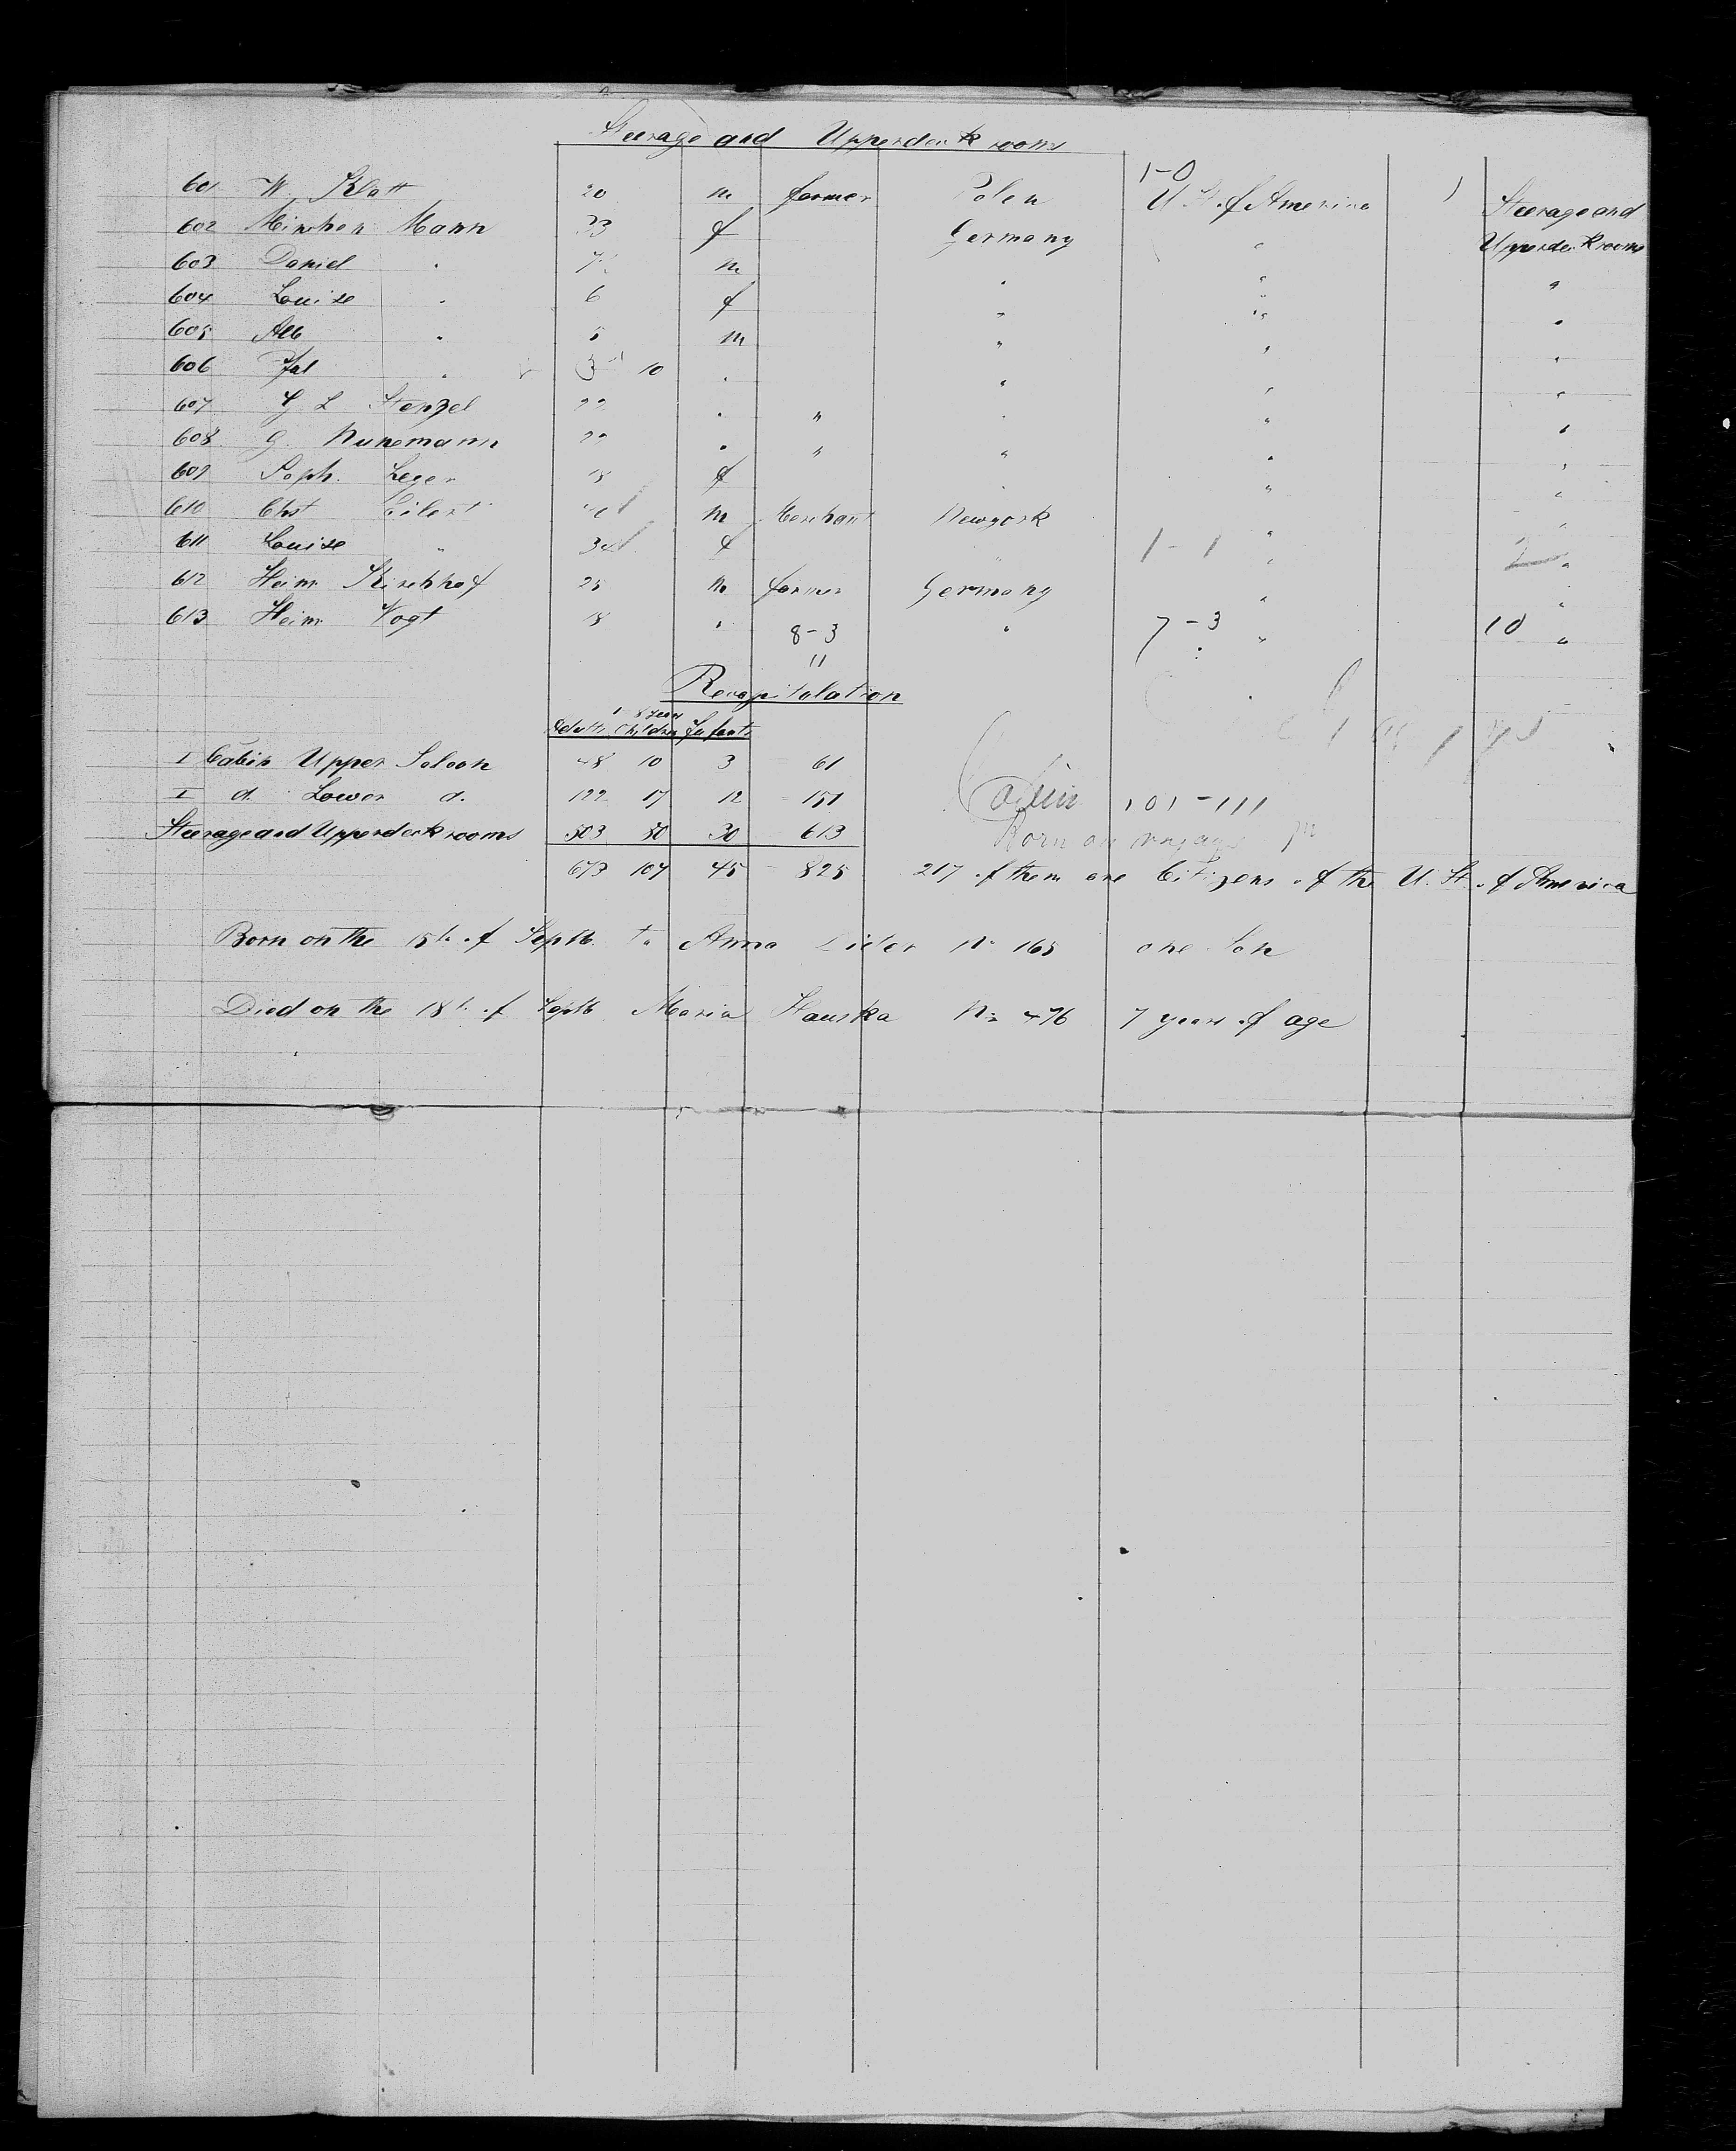 Steerage and Upperdeck rooms
1-0
601 W. Klatt 20 m farmer Polen U. St. of America 1 Steerage and
602 Minchen Mann 33 f Germany " Upperdeck rooms
603 Daniel " 7 m " " "
604 Louise " 6 f " " "
605 Alb " 5 m " " "
606 " 3 10 " " " "
607 G L Stenzel 22 " " " " "
608 G. Nunemann 22 " " " " "
609 Soph. Leger 18 f " " "
610 Chst Eilert m Merchant Newyork " "
611 Louise " 34 f " 1-1 " 2 "
612 Heinr Kirchhof 25 m farmer Germany " "
613 Heinr Vogt 18 " 8-3 " 7-3 " 10 "
11
Recapitulation
1 8 years
Adults Children Infants
I Cabin Upper Saloon 48 10 3 61
I d. Lower d. 122 17 12 151 Cabin 101-111
Steerage and Upperdeck rooms 503 80 30 613 Born on voyage
673 107 45 825 217 of them are Citizens of the U. St. of America
Born on the 15th of Septb. to Anna No 165 one Son
Died on the 18th of Septb Maria Hauska No 476 7 years of age